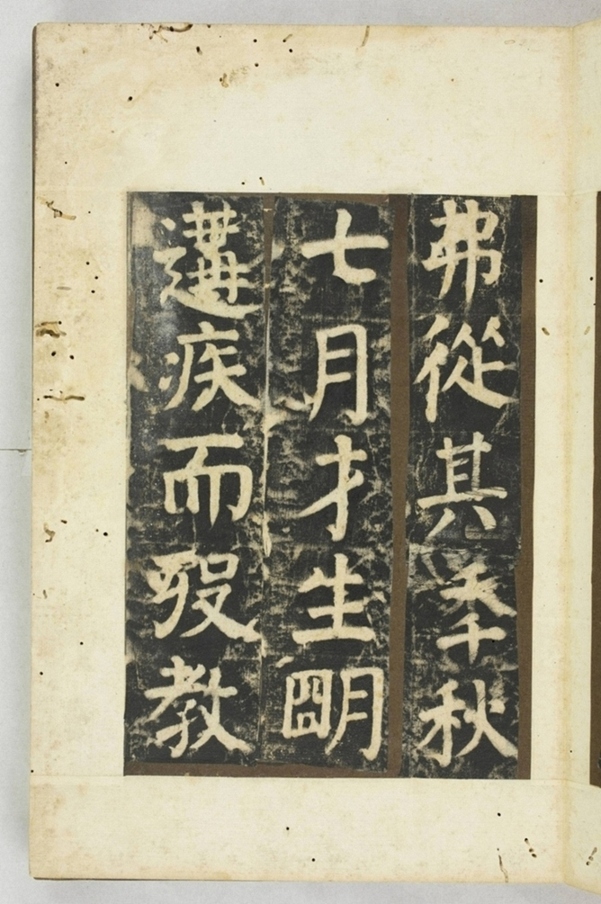 弗從其秊秋
七月才生朙
遘疾而歿教